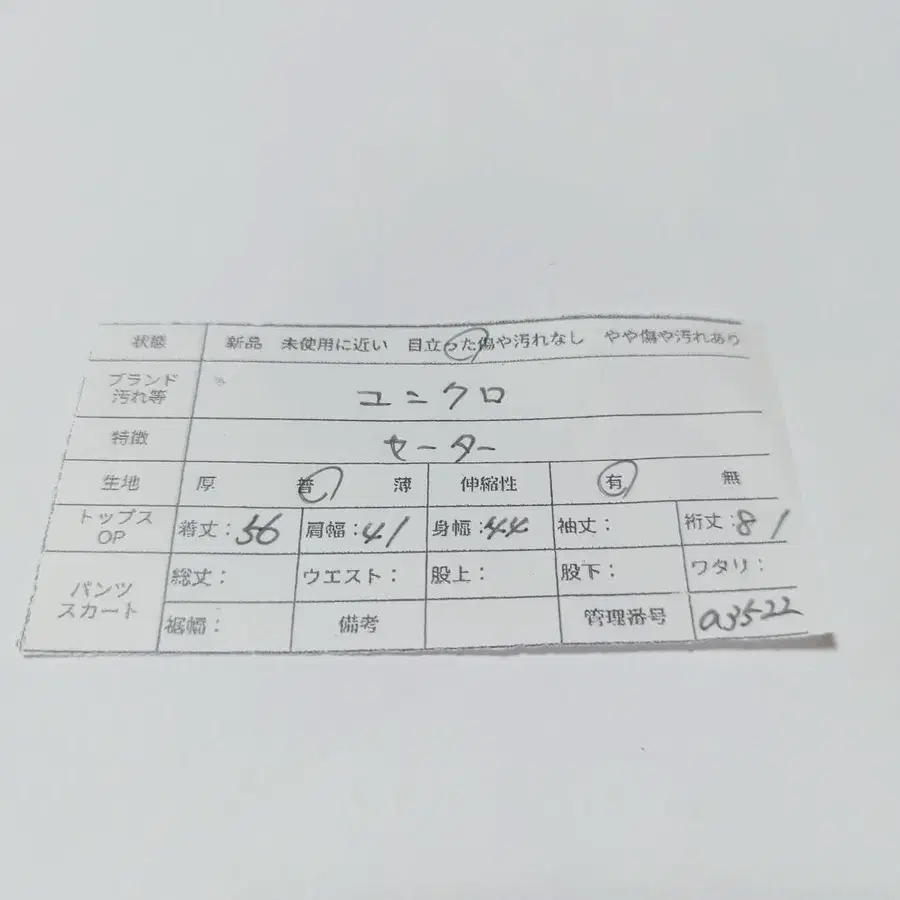 状態 新品 未使用に近い 目立った傷や汚れなし やや傷や汚れあり
ブランド
汚れ等 ユニクロ
特徴 セーター
生地 厚 普 薄 伸縮性 有 無
トップス
OP 着丈：56 肩幅：41 身幅：44 袖丈： 裄丈：81
パンツ
スカート 総丈： ウエスト： 股上： 股下： ワタリ：
裾幅： 備考 管理番号 a3522